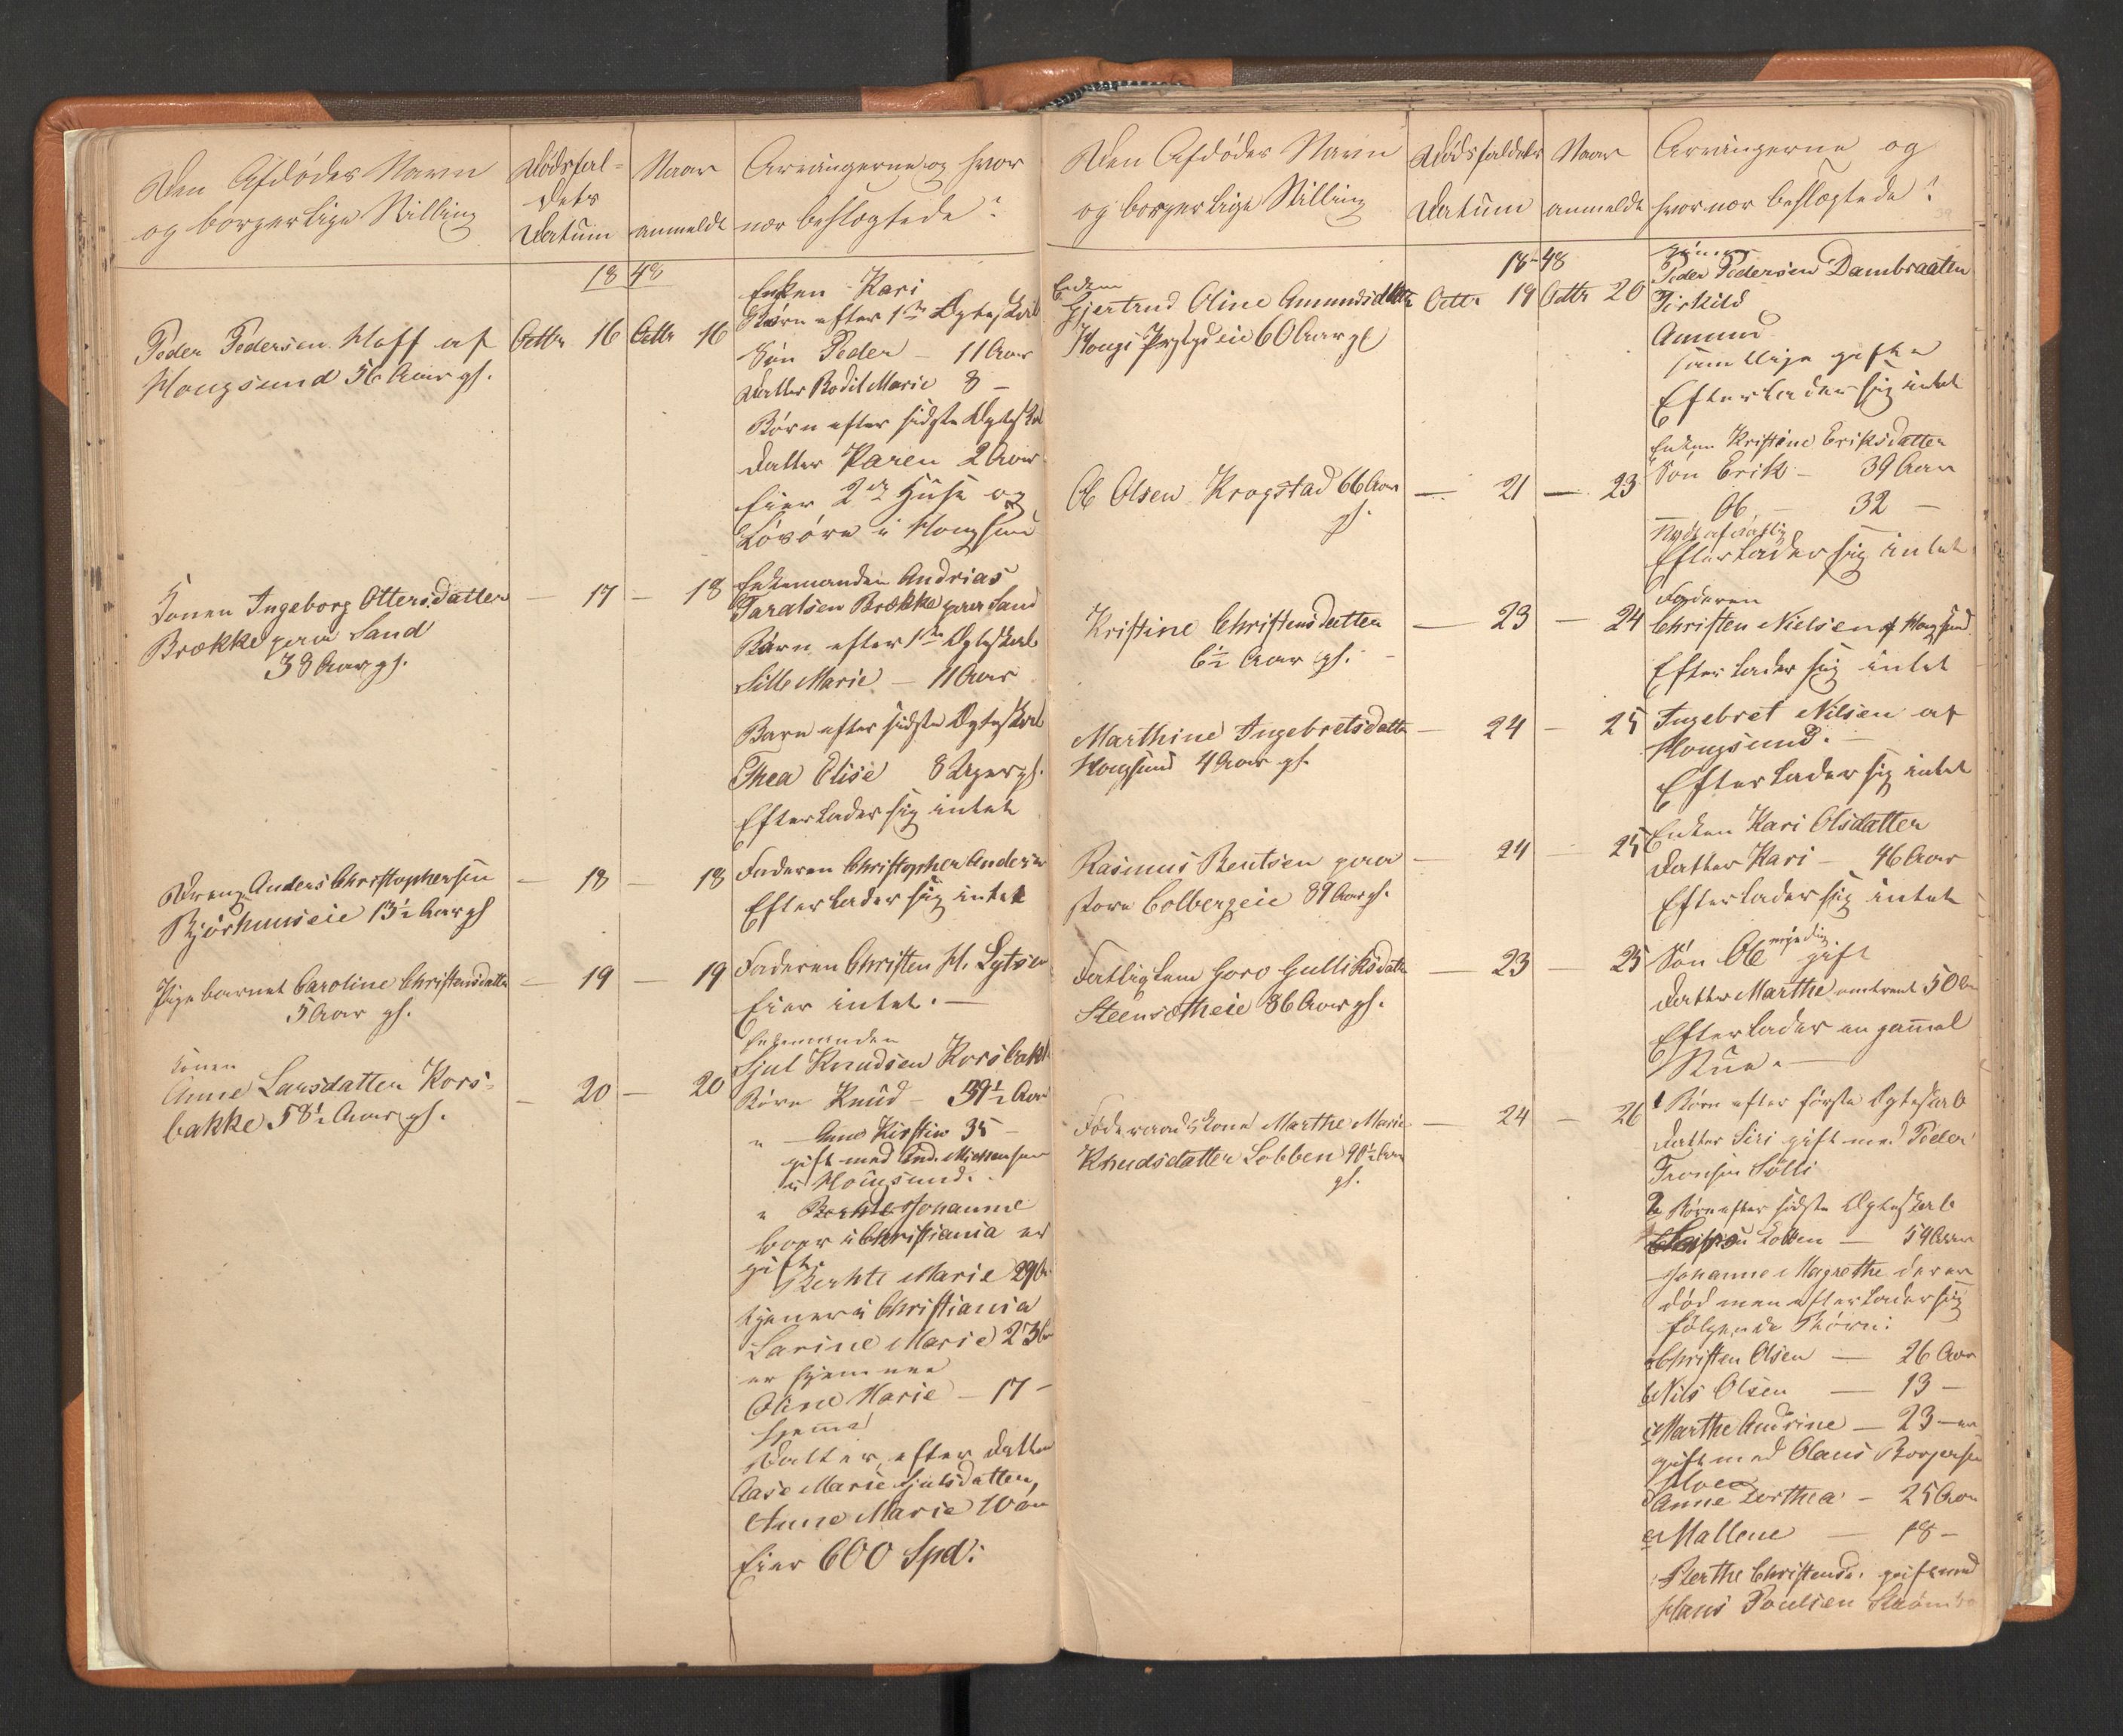 Den Afdødes Navn
og borgerlige Stilling
Dødsfal-
dets
Datum
Naar
anmeldt
Arvingerne og hvor
nær beslægtede?
1848
Peder Pedersen Hoff af
Hougsund 56 Aar gl.
Octbr 16
Octbr 16
Enken Kari
Børn efter 1ste Ægteskab
Søn Peder – 11 Aar
Datter Bodil Marie 8 –
Børn efter sidste Ægteskab
Datter Karen 2 Aar
Eier 2de Huse og
Løsøre i Hougsund
Konen Ingeborg Ottersdatter
Brække paa Sand
38 Aar gl.
— 17 — 18
Enkemanden Andrias
Taralsen Brække paa Sand
Børn efter 1ste Ægteskab
Sille Marie – 11 Aar
Barn efter sidste Ægteskab
Thea Elise 8 Uger gl.
Efterlader sig intet
Dreng Anders Christophersen
Bjørhuuseie 13½ Aar gl
— 18 — 18
Faderen Christopher Andersen
Efterlader sig intet
Pigebarnet Caroline Christensdatter
5 Aar gl.
— 19 — 19
Faderen Christen H. Lytsen
Eier intet. —
Konen
Anne Larsdatter Kors-
bakke 58½ Aar gl.
— 20 — 20
Enkemanden
Hjul Knudsen Korsbakke
Børn Knud – 39½ Aar
" – Anne Kirstin 35 –
gift med And.
i Hougsund.
" Berthe Johanne
boer i Christiania er
gift.
Berthe Marie 29 Aar
tjener i Christiania
Larine Marie 23 Aar
er hjemme
Oline Marie – 17 –
hjemme
Datter efter Datter
Aase Marie Hjulsdatter,
Anne Marie 10 Aar
Eier 600 Spd:
Den Afdødes Navn
og borgerlige Stilling
Dødsfaldets
Datum
Naar
anmeldt
Arvingerne og
hvor nær beslægtede?
39
18-48
Enken
Gjertrud Oline Amundsdatter
60 Aar gl
Octbr 19
Octbr 20
Sønner
Peder Pedersen Dambraaten
Torkild
Amund
samtlige gifte
Efterlader sig intet
Ole Olsen Krogstad 66 Aar
gl.
— 21 — 23
Enken Kristine Eriksdatter
Søn Erik – 39 Aar
— Ole – 32 –
Efterlader sig intet
Kristine Christensdatter
6½ Aar gl. –
— 23 — 24
Faderen
Christen Nielsen af Hougsund
Efterlader sig intet
Marthine Ingebretsdatter
Hougsund 4 Aar gl.
— 24 — 25
Ingebret Nilsen af
Hougsund. —
Efterlader sig intet
Rasmus Bentsen paa
store Colbergeie 89 Aar gl.
— 24 — 25
Enken Kari Olsdatter
Datter Kari – 46 Aar
Efterlader sig intet
Fattiglem Goro Gulliksdatter
Steensetheie 86 Aar gl.
— 23 — 25
Søn Ole myndig gift
Datter Marthe omtrent 50 Aar
Efterlader en gammel
Stue. —
Føderaadskone Marthe Marie
Knudsdatter Lobben 90½ Aar
gl.
— 24 — 26
1 Børn efter første Ægteskab
Datter Siri gift med Peder
Tronsen Sølli
2 Børn efter sidste Ægteskab
Lobben — 59 Aar
Johanne Magrethe der er
død men efterlader sig
følgende Børn:
a Christen Olsen — 26 Aar
b Nils Olsen — 13 –
c Marthe Andrine – 23 – er
gift med Olaus Borgersen
Moen
d Anne Dorthea – 25 Aar
e Mallene — 18 –
Berthe Christensd. gift med
Hans Poulsen